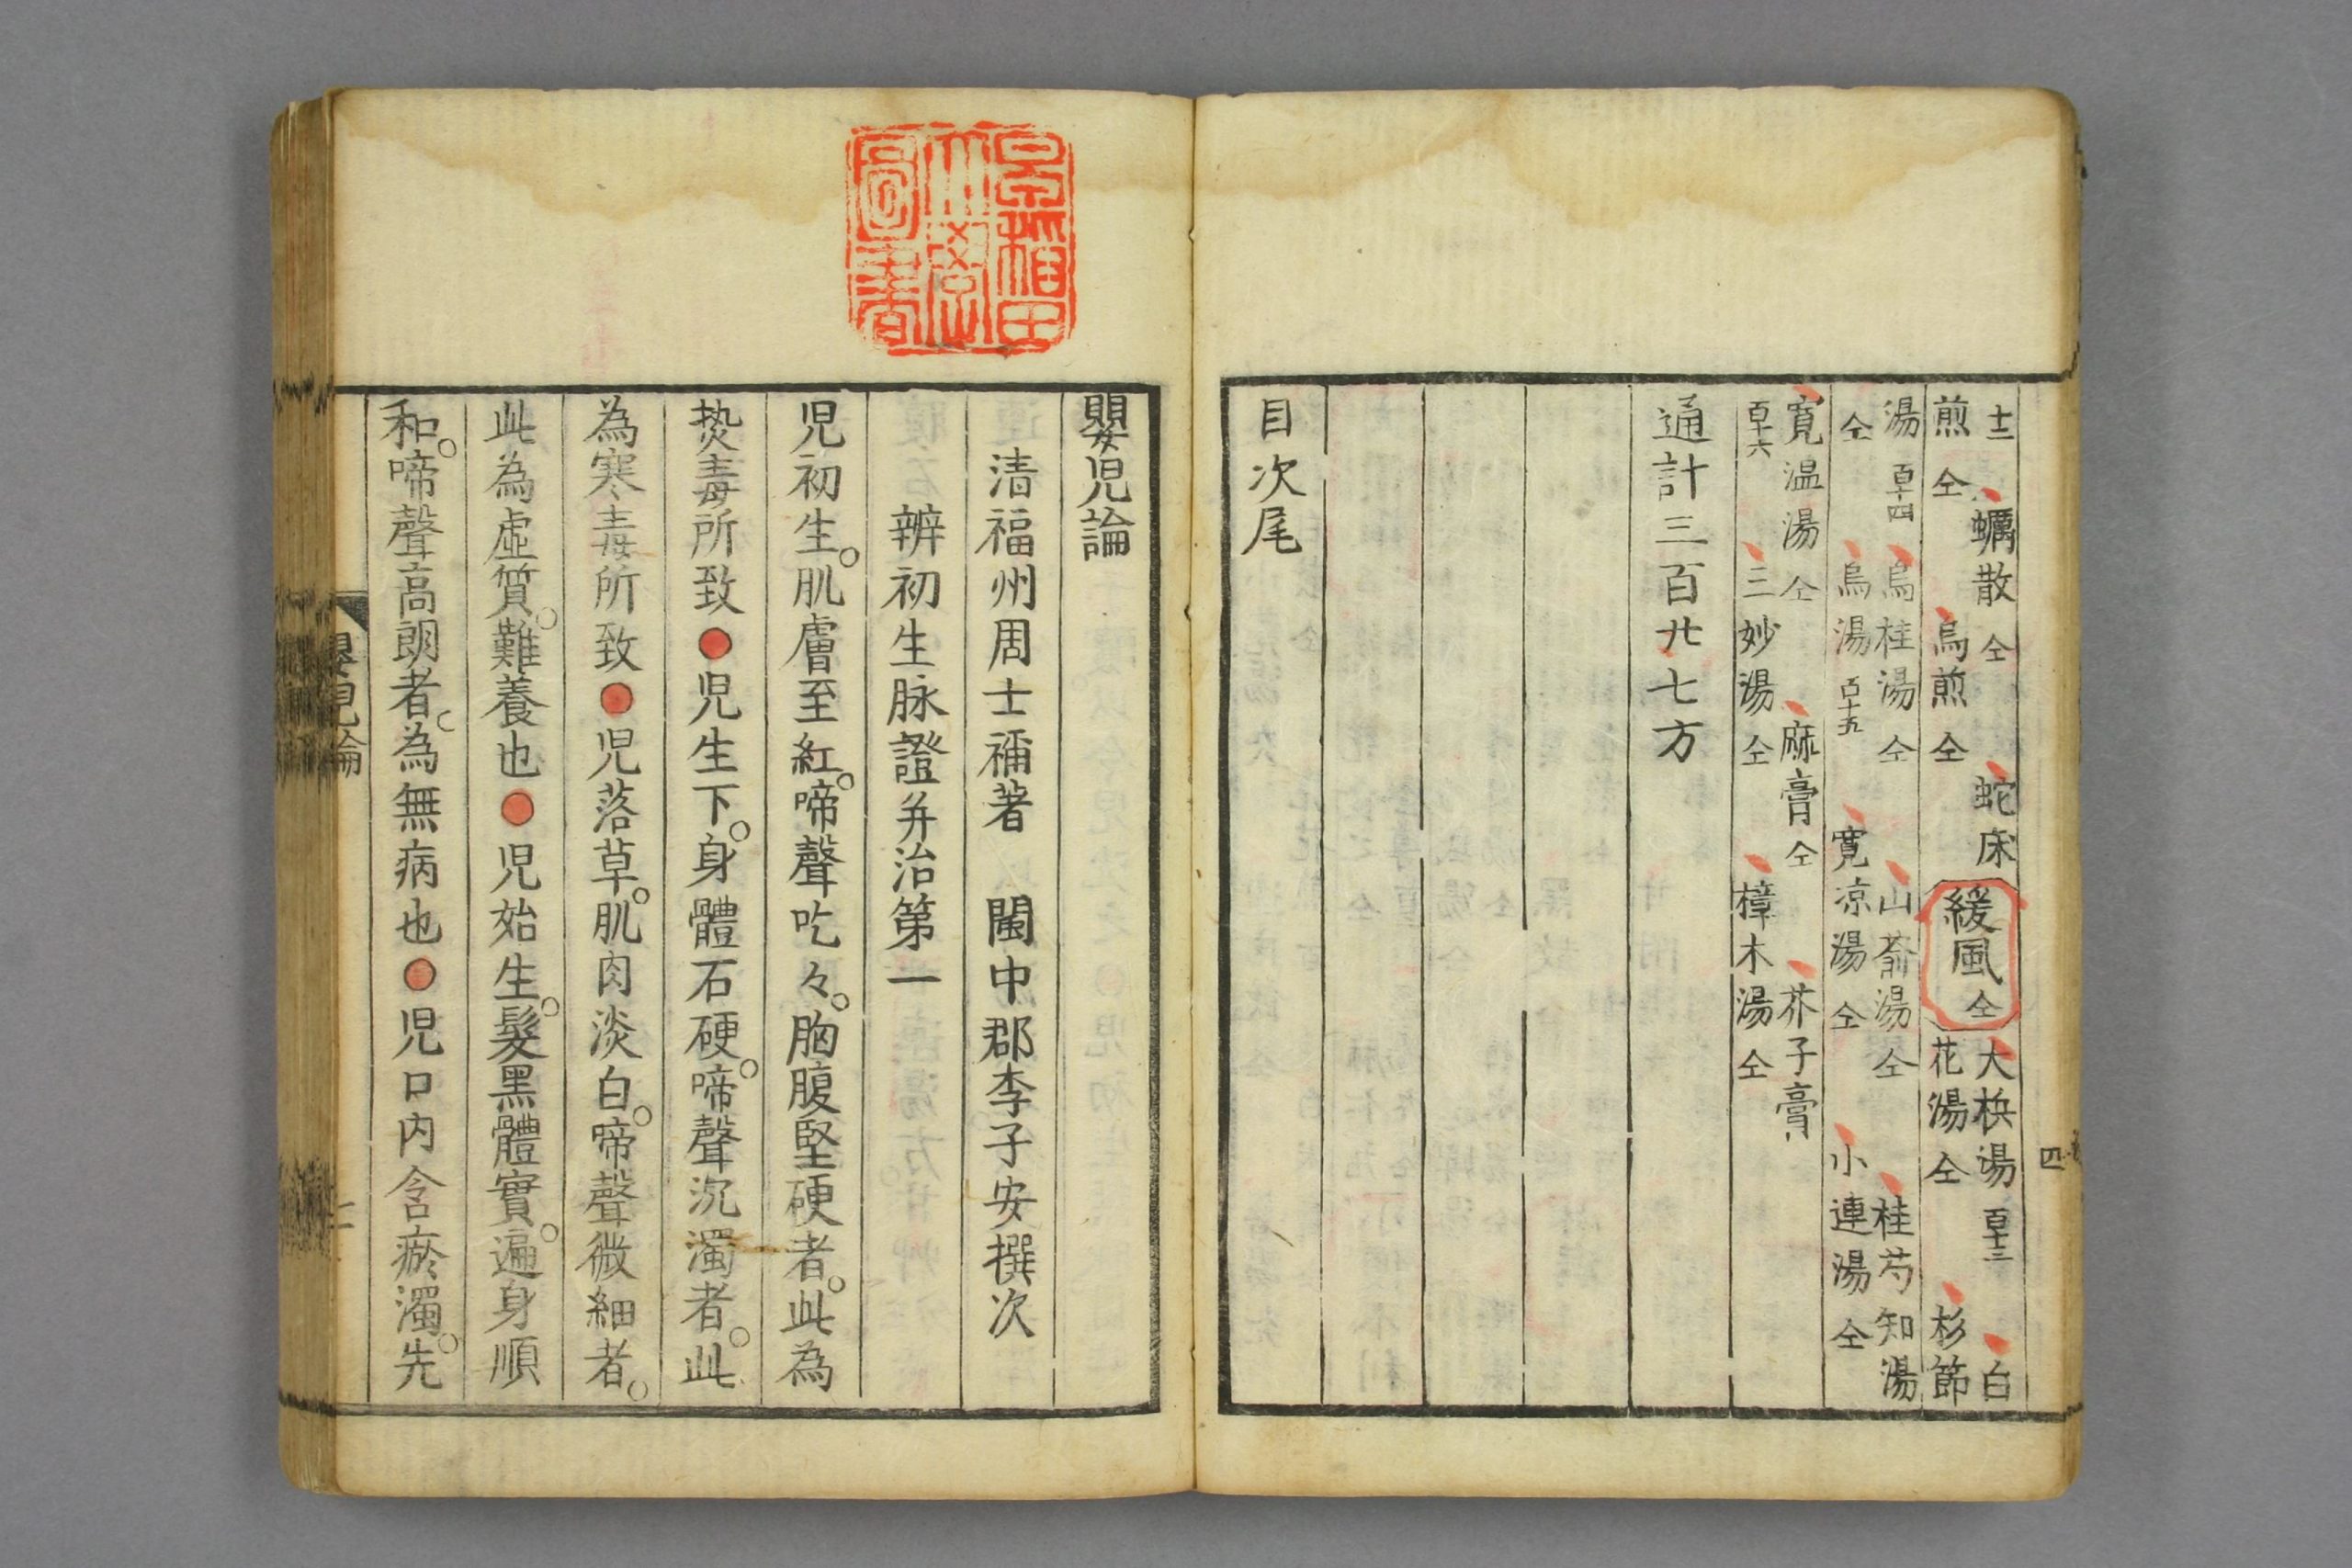 十二 蠣散 仝 蛇床
煎 仝 烏煎 仝
緩風 仝
大湯 百十三 白
花湯 仝 杉節
湯 百十四 烏桂湯 仝 山薺湯 仝 桂芍知湯
仝 烏湯 百十五 寛凉湯 仝 小連湯 仝
寛温湯 仝 麻膏 仝 芥子膏
百十六 三妙湯 仝 樟木湯 仝
通計三百廿七方
目次尾
四
早稲田
大學
圖書
嬰児論
清福州周士禰著 閩中郡李子安撰次
辨初生脉證并治第一
児初生。肌膚至紅。啼聲吃々。胸腹堅硬者。此為
𤍠毒所致●児生下。身體石硬。啼聲沉濁者。此
為寒毒所致●児落草。肌肉淡白。啼聲微細者。
此為虛質。難養也●児始生。髮黑體實。遍身順
和。啼聲高朗者。為無病也●児口内含瘀濁。先
嬰児論
一